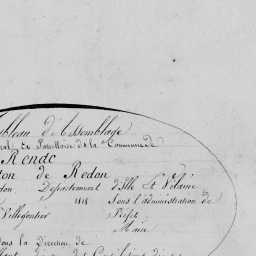 bleau d'Assemblage
ral, et Parcellaire de la Commune de
Rende
ton de Redon
don Département d'Ille et Vilaine
1818 Sous l'administration de
Villegontier Préfet
Maire
ous la Direction de